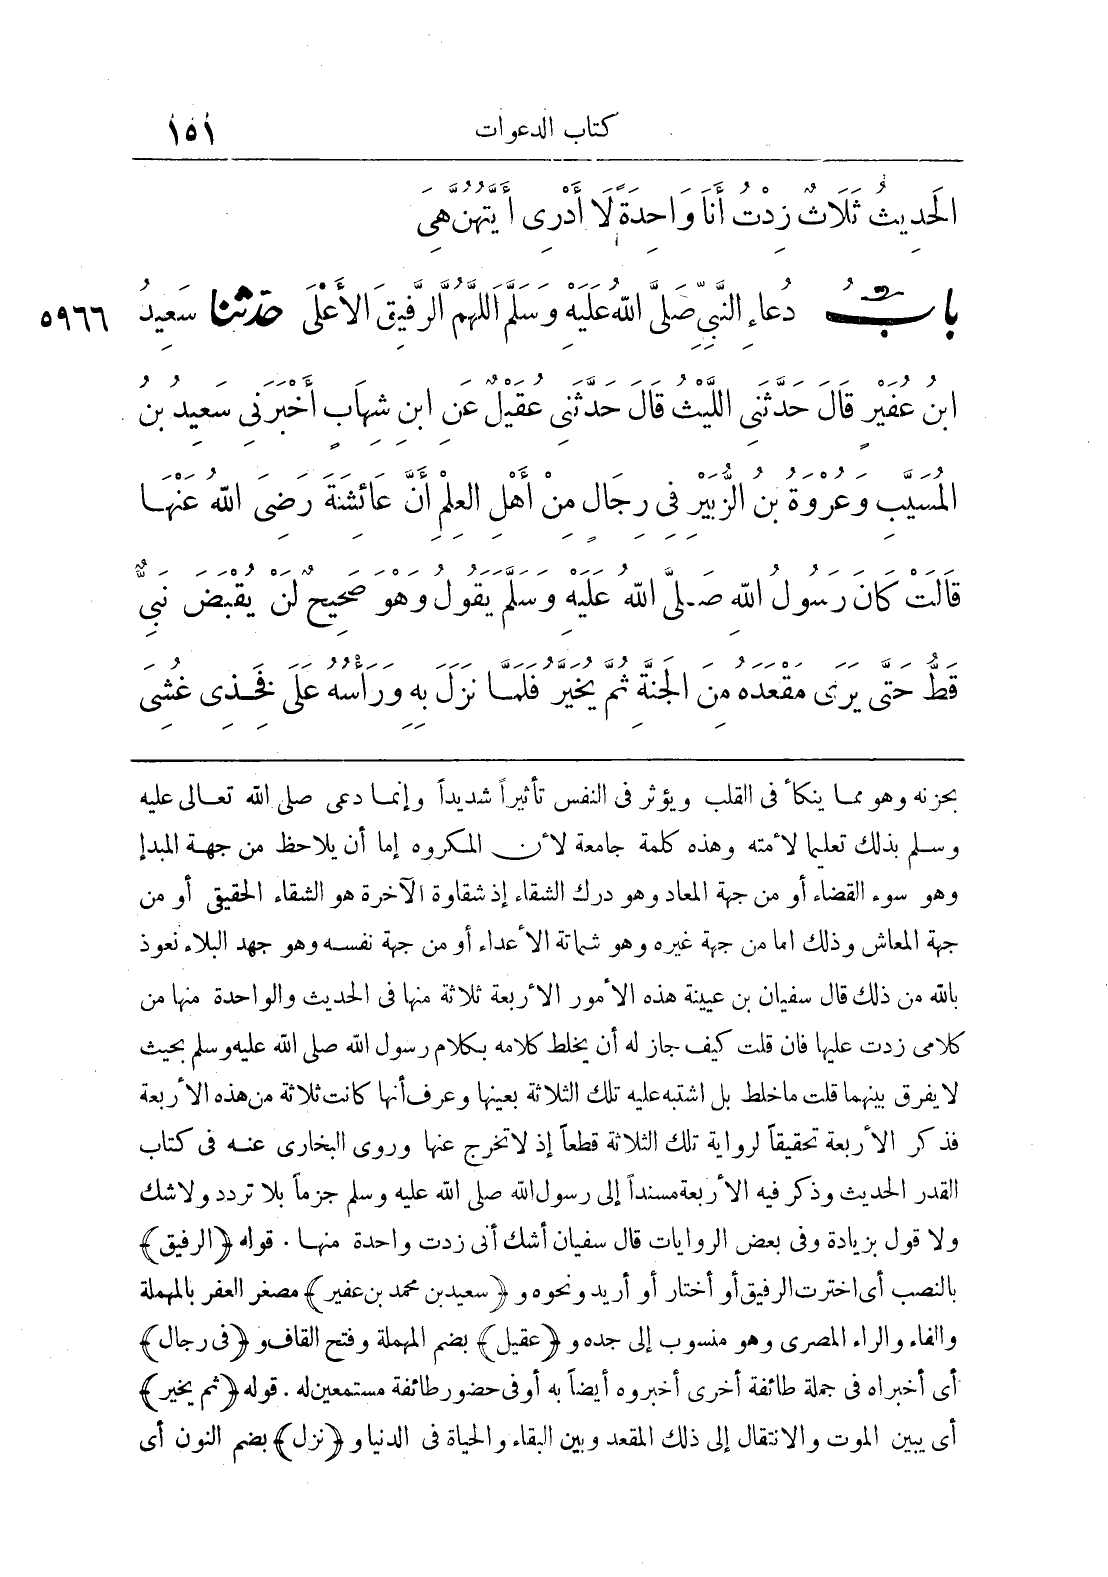 كتاب الدعوات ١٥١
الحَدِيثُ ثَلَاثٌ زِدْتُ أَنَا وَاحِدَةً لَا أَدْرِى أَيَّتُهُنَّ هِىَ
بابُ دُعَاءِ النَّبِىِّ صَلَّى اللهُ عَلَيْهِ وَسَلَّمَ اللَّهُمَّ الرَّفِيقَ الأَعْلَى حَدَّثَنَا سَعِيدُ ٥٩٦٦
ابْنُ عُفَيْرٍ قَالَ حَدَّثَنِى اللَّيْثُ قَالَ حَدَّثَنِى عُقَيْلٌ عَنِ ابْنِ شِهَابٍ أَخْبَرَنِى سَعِيدُ بْنُ
المُسَيَّبِ وَعُرْوَةُ بْنُ الزُّبَيْرِ فِى رِجَالٍ مِنْ أَهْلِ العِلْمِ أَنَّ عَائِشَةَ رَضِىَ اللهُ عَنْهَا
قَالَتْ كَانَ رَسُولُ اللهِ صَلَّى اللهُ عَلَيْهِ وَسَلَّمَ يَقُولُ وَهُوَ صَحِيحٌ لَنْ يُقْبَضَ نَبِىٌّ
قَطُّ حَتَّى يَرَى مَقْعَدَهُ مِنَ الجَنَّةِ ثُمَّ يُخَيَّرُ فَلَمَّا نَزَلَ بِهِ وَرَأْسُهُ عَلَى فَخِذِى غُشِىَ
بحزنه وهو مما ينكأ فى القلب ويؤثر فى النفس تأثيراً شديداً وإنما دعى صلى الله تعالى عليه
وسلم بذلك تعليما لأمته وهذه كلمة جامعة لأن المكروه إما أن يلاحظ من جهة المبدإ
وهو سوء القضاء أو من جهة المعاد وهو درك الشقاء إذ شقاوة الآخرة هو الشقاء الحقيقى أو من
جهة المعاش وذلك اما من جهة غيره وهو شماتة الأعداء أو من جهة نفسه وهو جهد البلاء نعوذ
بالله من ذلك قال سفيان بن عيينة هذه الأمور الأربعة ثلاثة منها فى الحديث والواحدة منها من
كلامى زدت عليها فان قلت كيف جاز له أن يخلط كلامه بكلام رسول الله صلى الله عليه وسلم بحيث
لا يفرق بينهما قلت ما خلط بل اشتبه عليه تلك الثلاثة بعينها وعرف أنها كانت ثلاثة من هذه الأربعة
فذكر الأربعة تحقيقاً لرواية تلك الثلاثة قطعاً إذ لا تخرج عنها وروى البخارى عنه فى كتاب
القدر الحديث وذكر فيه الأربعة مسنداً إلى رسول الله صلى الله عليه وسلم جزماً بلا تردد ولا شك
ولا قول بزيادة وفى بعض الروايات قال سفيان أشك أنى زدت واحدة منها . قوله ﴿الرفيق﴾
بالنصب أى اخترت الرفيق أو أختار أو أريد ونحوه و ﴿سعيد بن محمد بن عفير﴾ مصغر العفر بالمهملة
والفاء والراء المصرى وهو منسوب إلى جده و ﴿عقيل﴾ بضم المهملة وفتح القاف و ﴿فى رجال﴾
أى أخبراه فى جملة طائفة أخرى أخبروه أيضاً به أو فى حضور طائفة مستمعين له . قوله ﴿ثم يخير﴾
أى يبين الموت والانتقال إلى ذلك المقعد وبين البقاء والحياة فى الدنيا و ﴿نزل﴾ بضم النون أى